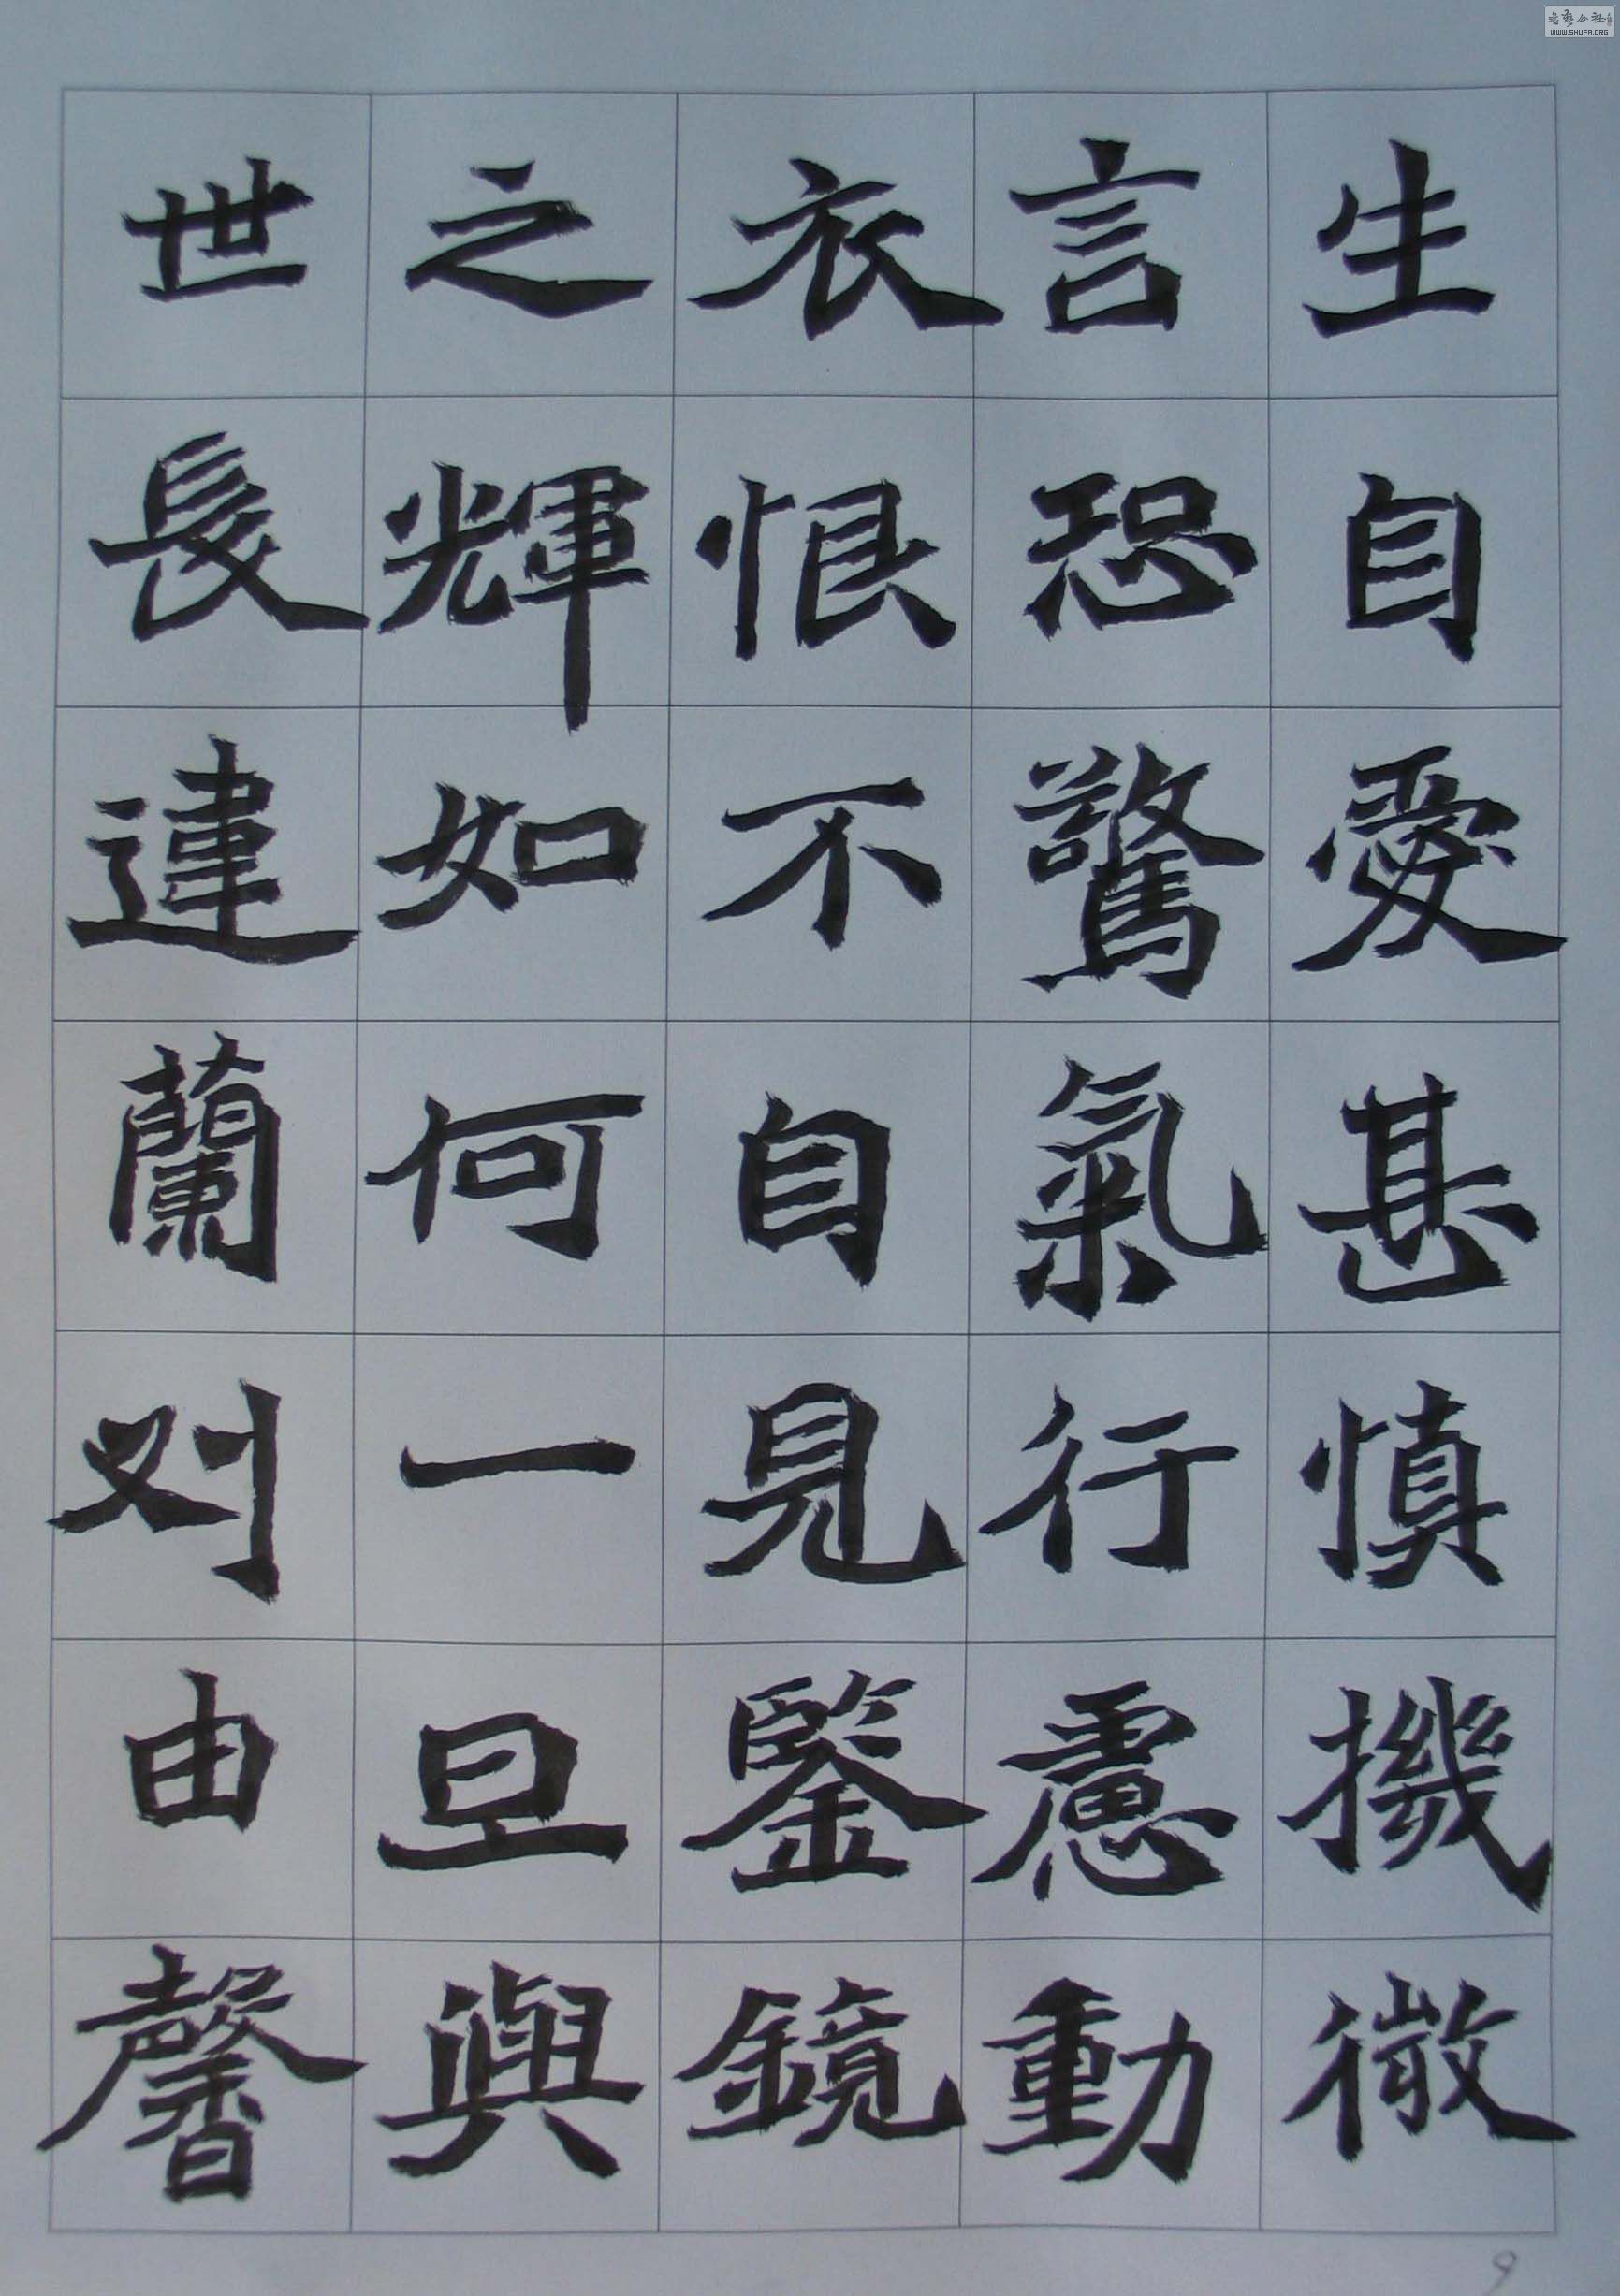 生自愛甚慎機微
言恐驚氣行慮動
衣恨不自見鑒鏡
之輝如何一旦與
世長違蘭刈由馨
9
WWW.SHUFA.ORG